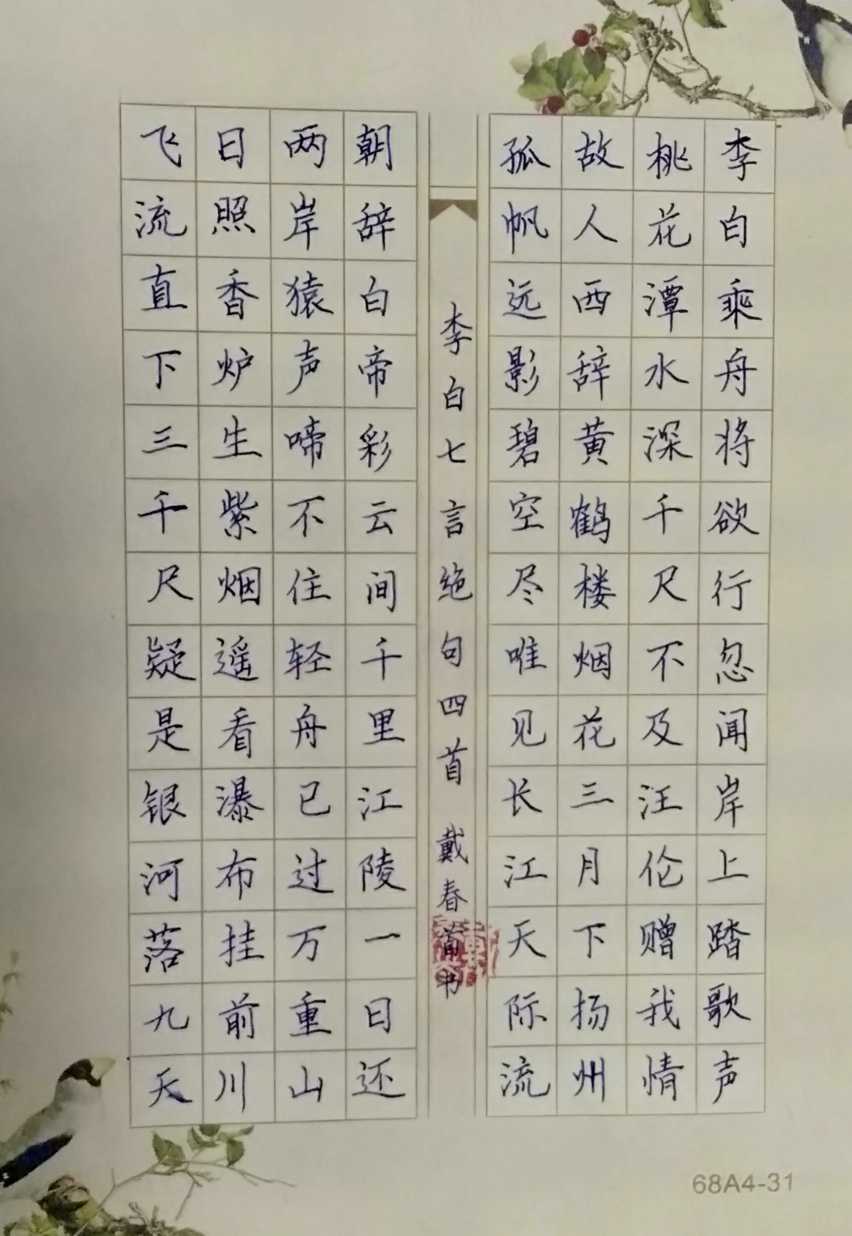 李白乘舟将欲行忽闻岸上踏歌声
桃花潭水深千尺不及汪伦赠我情
故人西辞黄鹤楼烟花三月下扬州
孤帆远影碧空尽唯见长江天际流
李白七言绝句四首 戴春 书
朝辞白帝彩云间千里江陵一日还
两岸猿声啼不住轻舟已过万重山
日照香炉生紫烟遥看瀑布挂前川
飞流直下三千尺疑是银河落九天
68A4-31